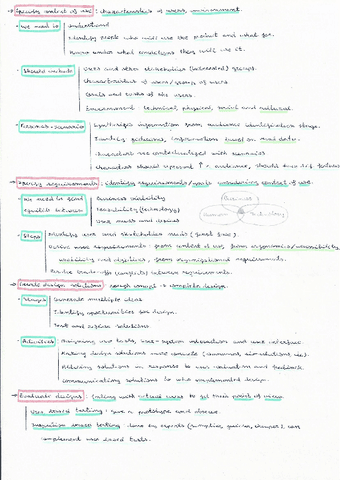 → Specify context of use: characteristics of users, environment.
• We need to Understand
Identify people who will use the product and what for.
Know under what conditions they will use it.
• Should include Users and other stakeholder (interested) groups.
Characteristics of users/groups of users
Goals and tasks of the users.
Environment: technical, physical, social and cultural.
• Personas + scenarios Synthesize information from audience identification stage.
Fictitious persons, (information based on real data.
characters are contextualized with scenarios
characters should represent ↑ n. audience, should
→ Specify requirements: identify requirements/goals considering context of use.
• We need to find equilib. between Business viability
Feasibility (technology)
User needs and desires
Business
Technology
• Steps Identify user and stakeholder needs
Derive user requirements: from context of use, from ergonomics/accessibility,
usability and objectives, from organizational requirements.
Resolve trade-offs (conflicts) between requirements.
→ Create design solutions: rough concept → complete design.
• Stages Generate multiple ideas
Identify opportunities for design.
Test and refine solutions.
• Activities Designing user tasks, user-system interaction and user interface.
Making design solutions more concrete (scenarios, simulations, etc).
Altering solutions in response to user evaluation and feedback.
Communicating solutions to who implemented design.
→ Evaluate designs: (relying with actual users to get their point of view.
User based testing: give a prototype and observe.
Inspection based testing: done by experts (guidelines, quicker, cheaper), can
complement user based tests.